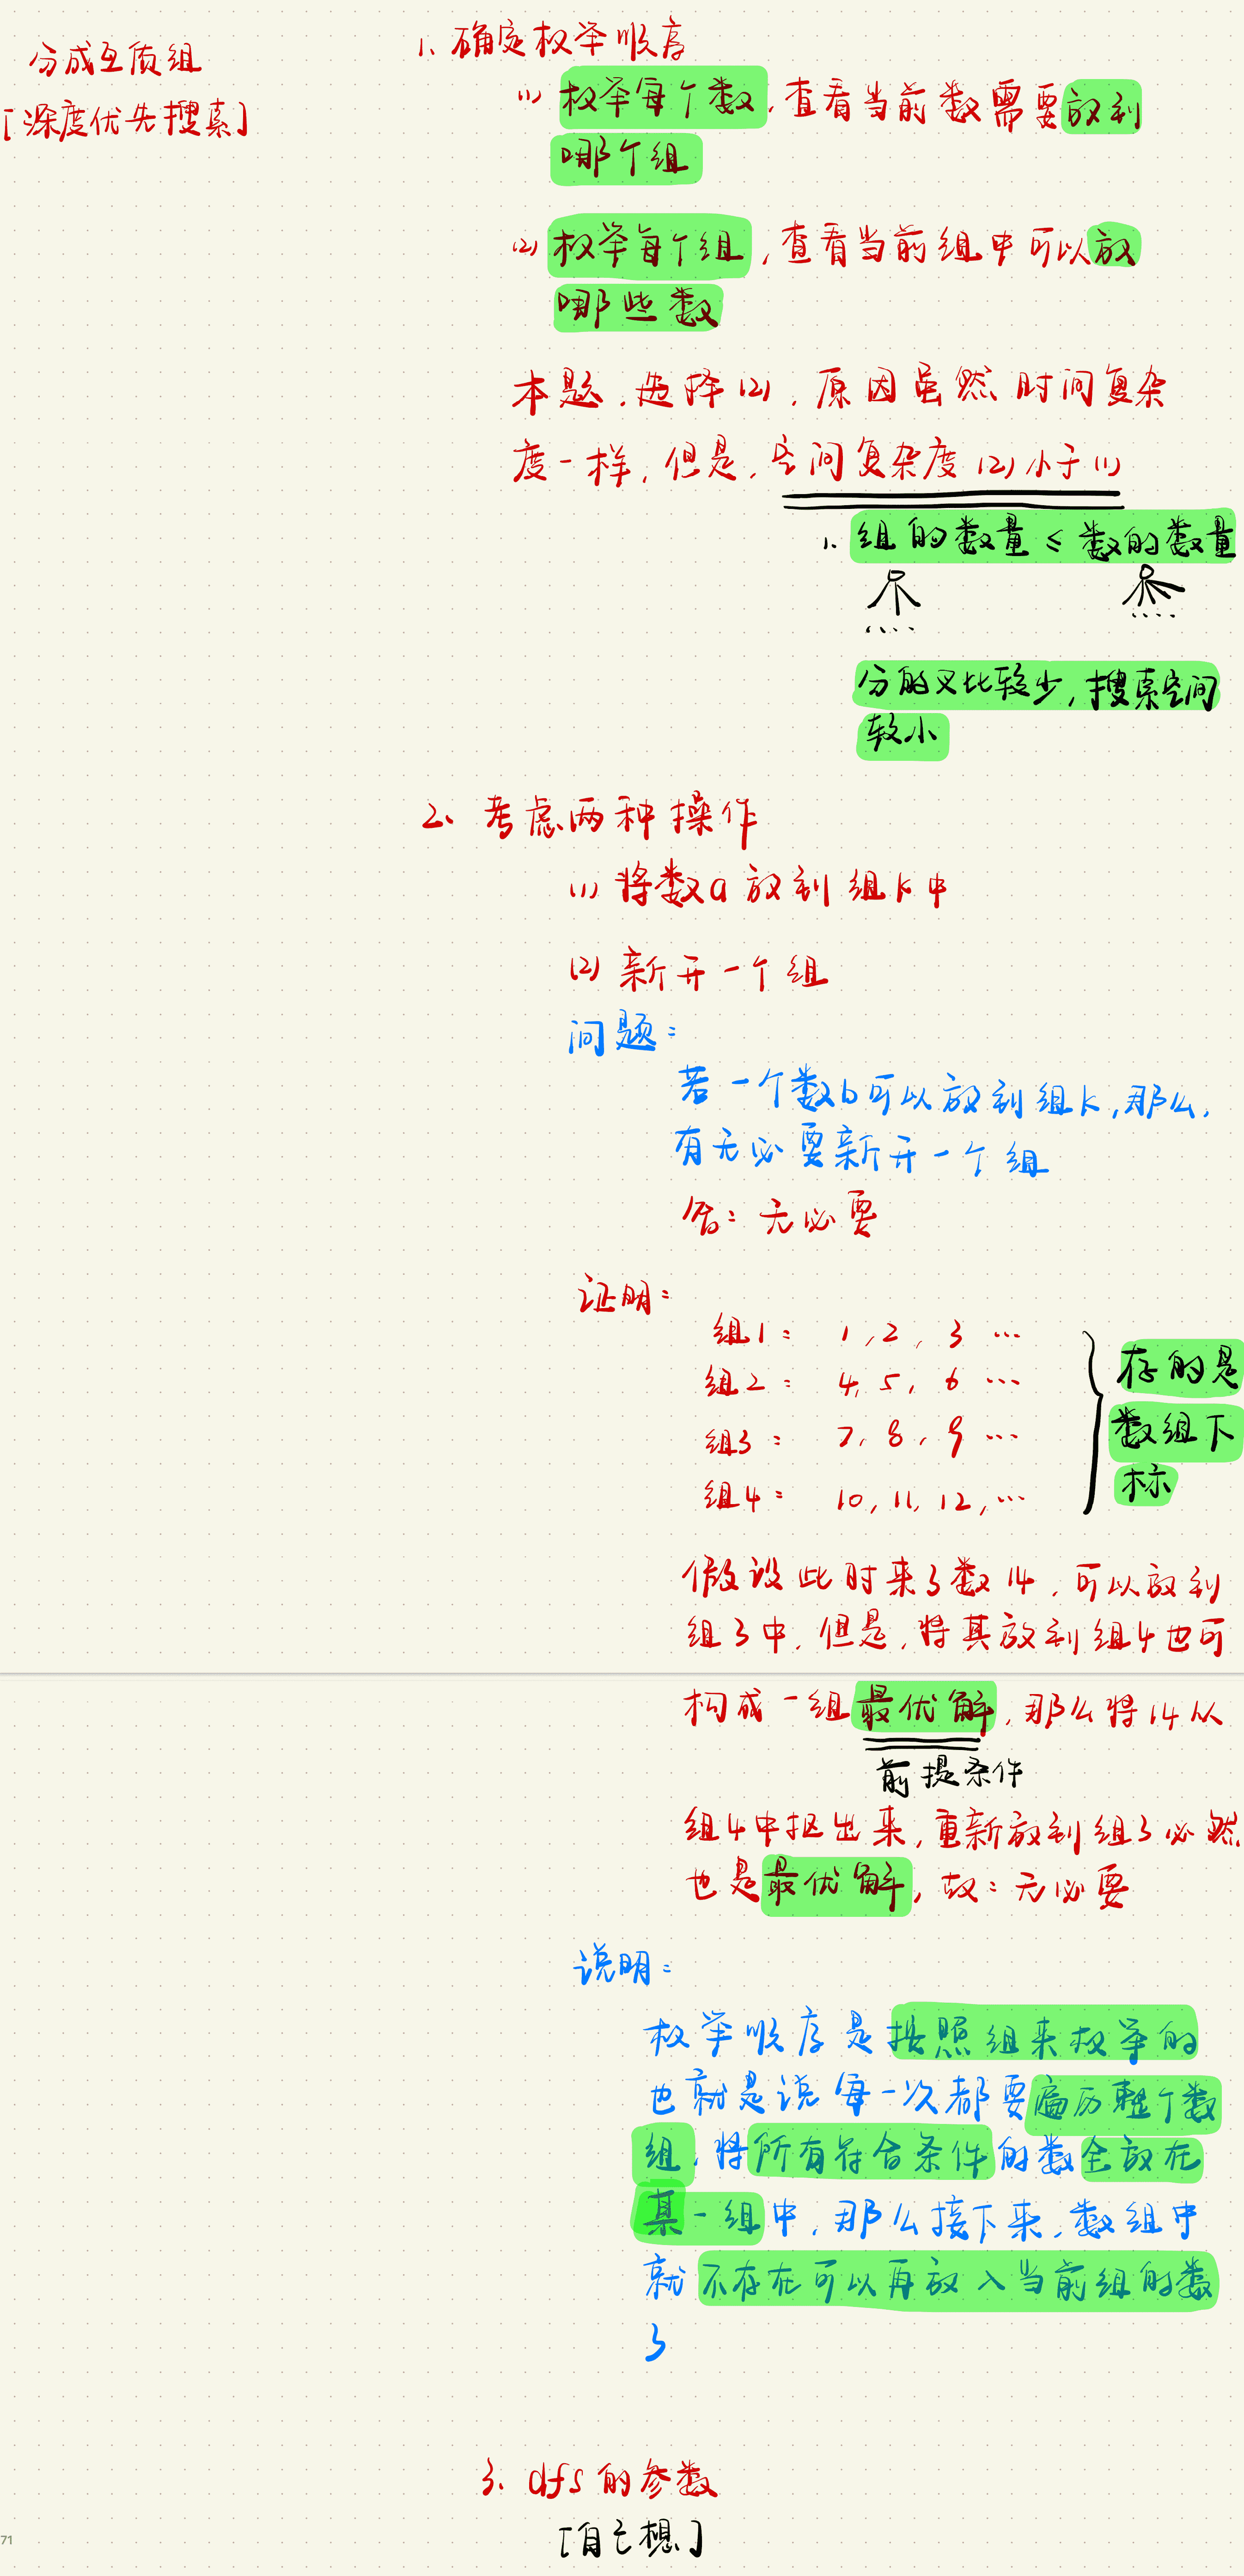 分成互质组
[深度优先搜索]
1、确定枚举顺序
(1) 枚举每个数，查看当前数需要放到
哪个组
(2) 枚举每个组，查看当前组中可以放
哪些数
本题，选择(2)，原因虽然时间复杂
度一样，但是，空间复杂度(2)小于(1)
1、组的数量 ≤ 数的数量
分的叉比较少，搜索空间
较小
2、考虑两种操作
(1) 将数a放到组k中
(2) 新开一个组
问题：
若一个数b可以放到组k，那么，
有无必要新开一个组
答：无必要
证明：
组1： 1, 2, 3 …
组2： 4, 5, 6 …
组3： 7, 8, 9 …
组4： 10, 11, 12, …
存的是
数组下
标
假设此时来了数14，可以放到
组3中，但是，将其放到组4也可
构成一组最优解，那么将14从
前提条件
组4中抠出来，重新放到组3必然
也是最优解，故：无必要
说明：
枚举顺序是按照组来枚举的
也就是说每一次都要遍历整个数
组，将所有符合条件的数全放在
某一组中，那么接下来，数组中
就不存在可以再放入当前组的数
了
3、dfs的参数
[自己想]
71